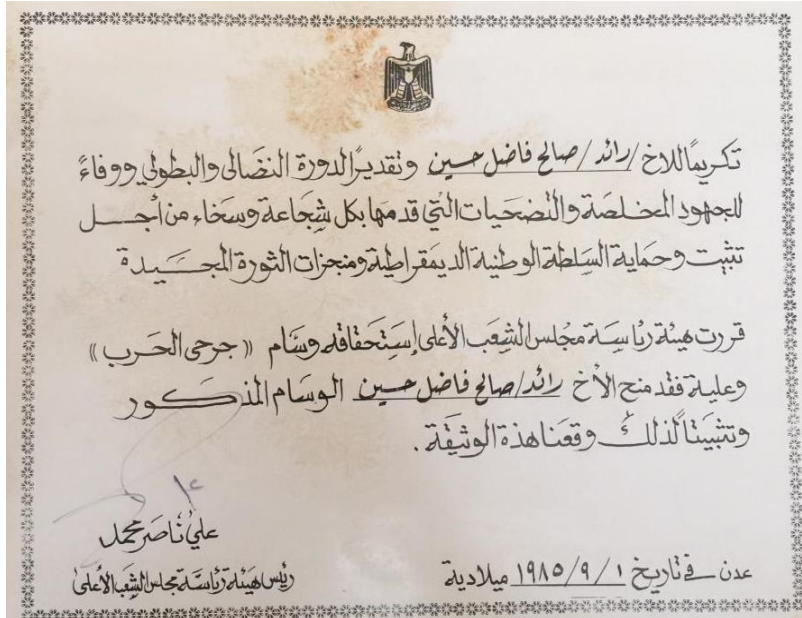 تكريماً للاخ / رائد / صالح فاضل حسين وتقديراً لدورة النضالي والبطولي ووفاءً
للجهود المخلصة والتضحيات التي قدمها بكل شجاعة وسخاء من أجل
تثبيت وحماية السلطة الوطنية الديمقراطية ومنجزات الثورة المجيدة
قررت هيئة رئاسة مجلس الشعب الأعلى إستحقاقه وسام « جرحى الحرب »
وعلية فقد منح الأخ رائد / صالح فاضل حسين الوسام المذكور
وتثبيتاً لذلك وقعنا هذة الوثيقة .
علي ناصر محمد
رئيس هيئة رئاسة مجلس الشعب الأعلى
عدن في تاريخ ١ / ٩ / ١٩٨٥ ميلادية